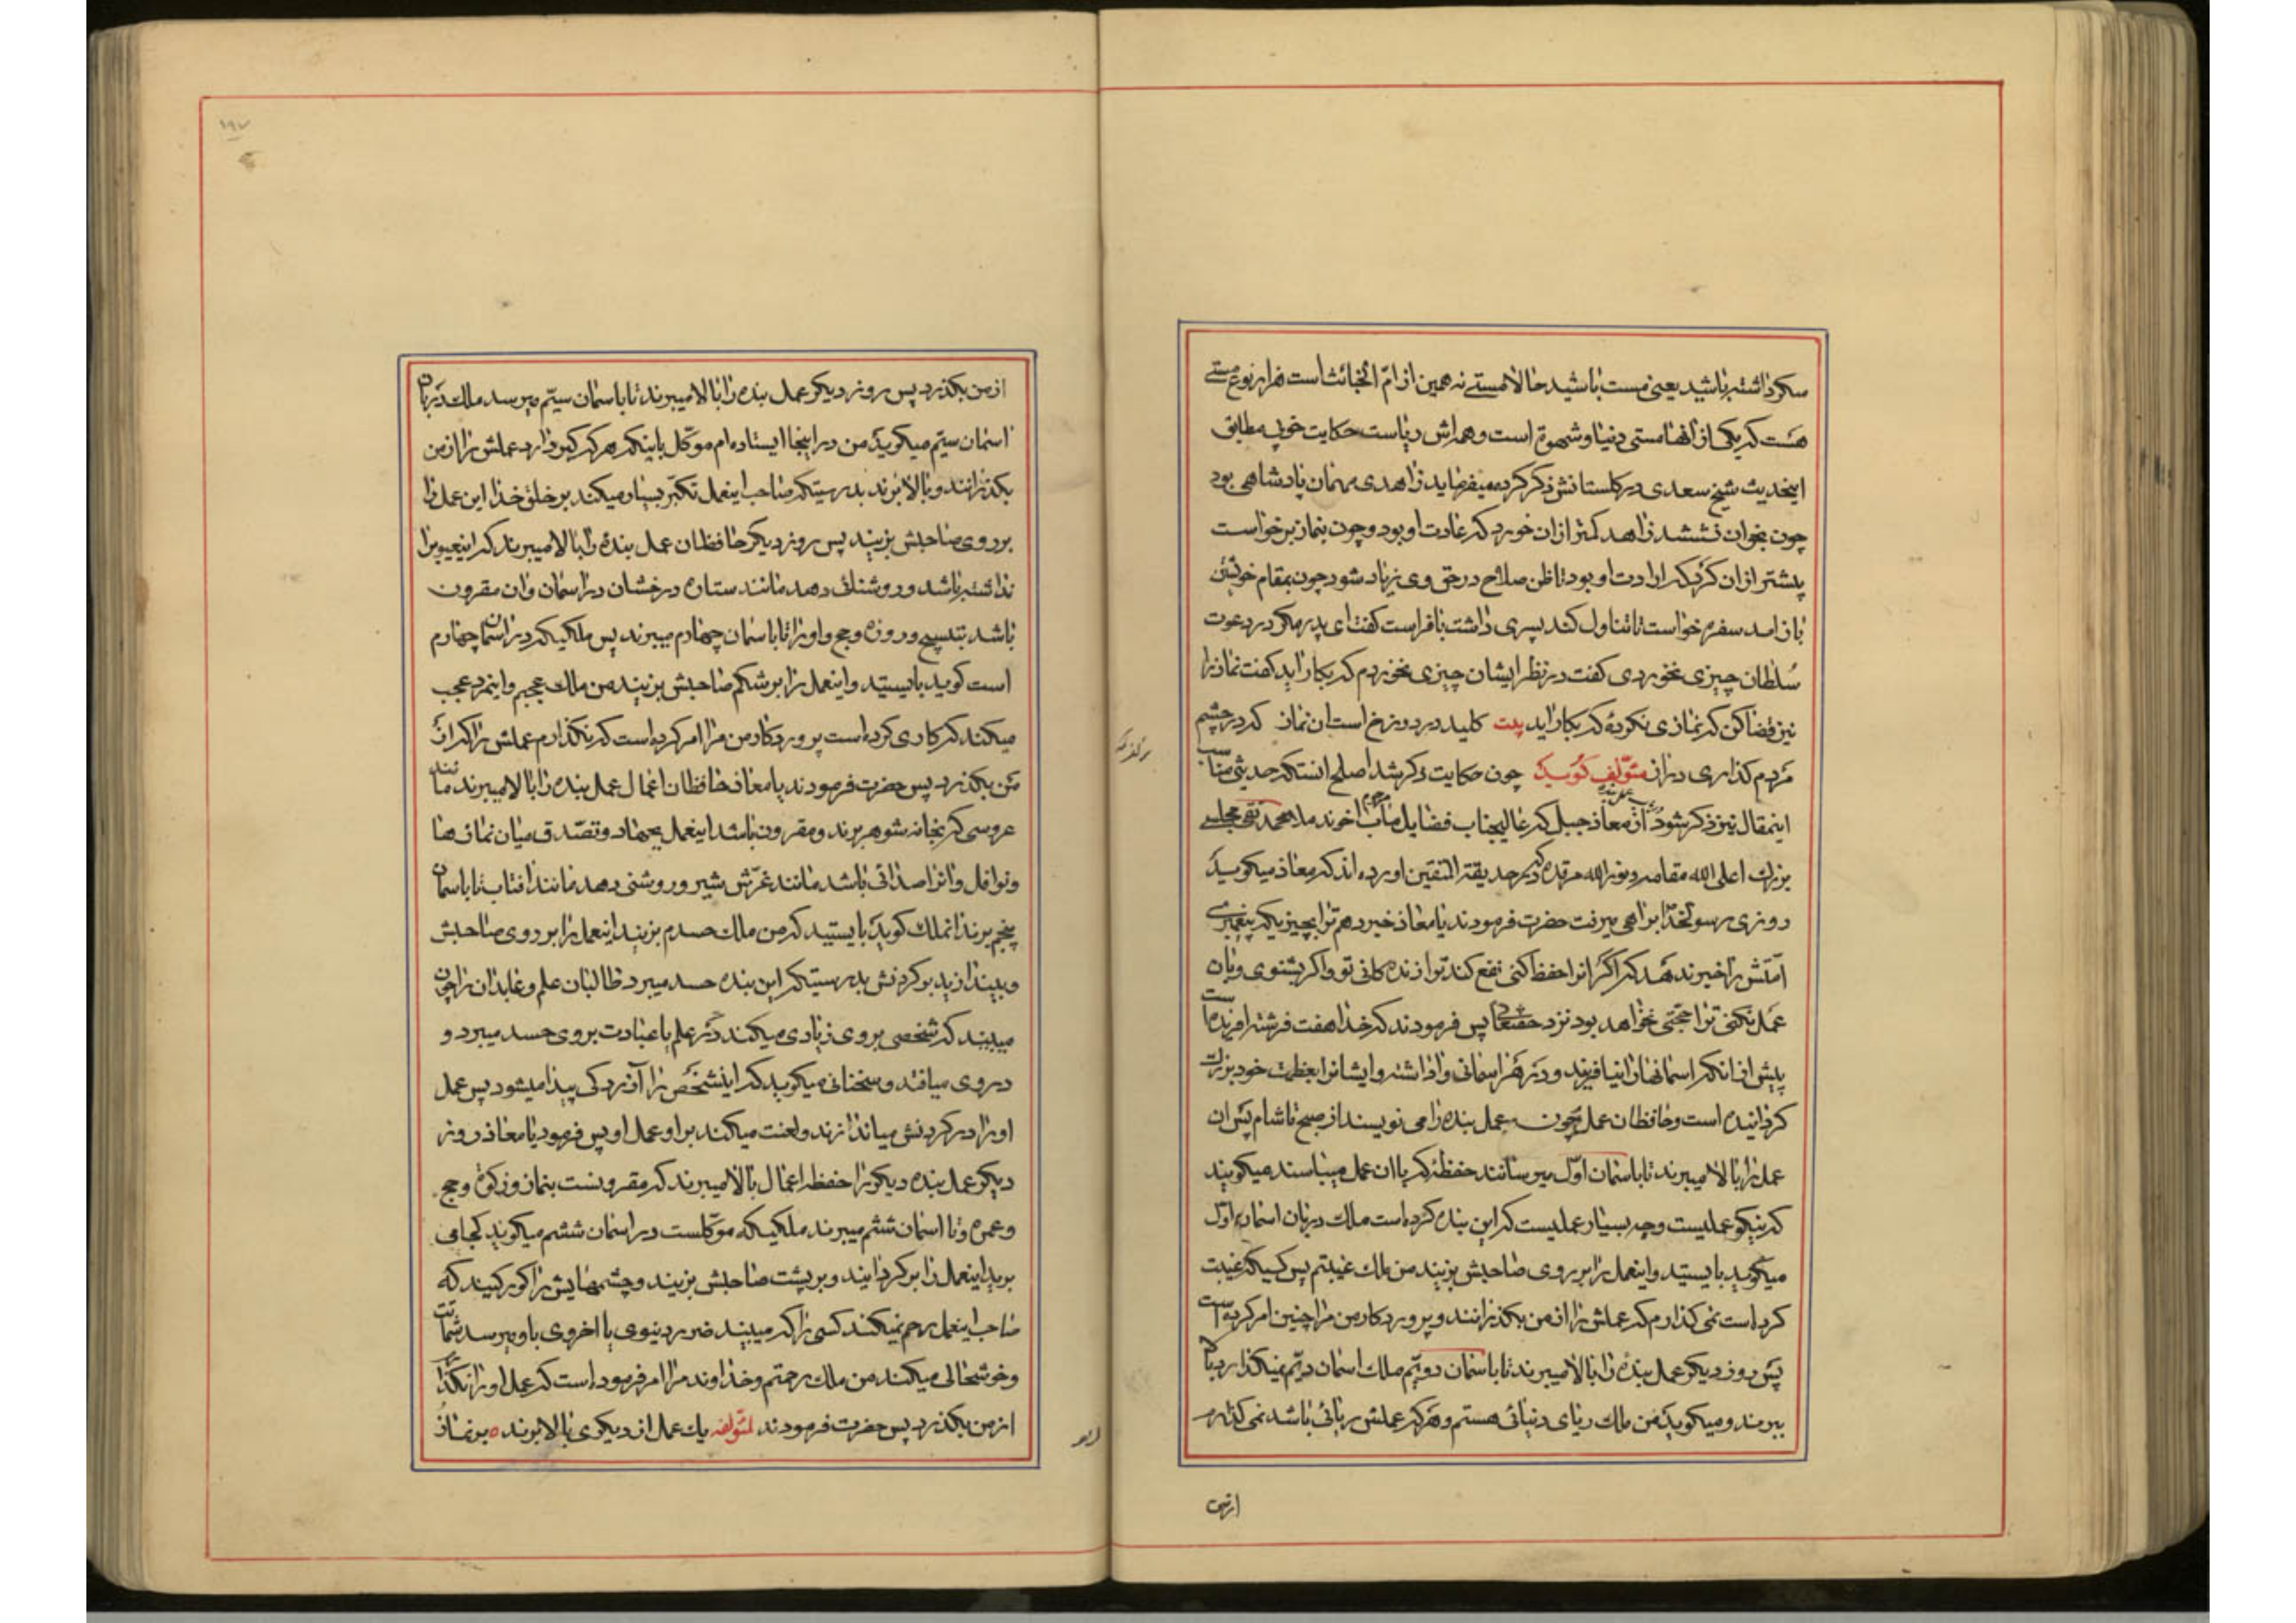 سکر داشته باشید یعنی مست باشید حالا مستی نه همین از ام الخبائث است هزار نوع مستی
هست که یکی از آنها مستی دنیا و شهوة است و همراش ریاست حکایت خوب مطابق
اینحدیث شیخ سعدی در کلستانش ذکر کرده میفرماید زاهدی مهمان پادشاهی بود
چون بخوان نشستند زاهد کمتر از ان خورد که عادت او بود و چون بنماز برخواست
پیشتر از ان کرد که ارادت او بود تا ظن صلاح در حق وی زیاد شود چون بمقام خویش
باز امد سفره خواست تا تناول کند پسری داشت با فراست کفت ای پدر مکر در دعوت
سُلطان چیزی نخوردی کفت در نظر ایشان چیزی نخوردم که بکار اید کفت نماز را
نیز قضا کن که نمازی نکردهٔ که بکار اید بیت کلید در دوزخ است ان نماز که در چشم
مردم کذاری دراز مؤلف کوید چون حکایت ذکر شد اصلح انستکه حدیثی مناسب
اینمقال نیز ذکر شود از معاذ جبل که عالیجناب فضایل ماب مرحوم اخوند ملا محمد تقی مجلسی
بزرك اعلی الله مقامه و نور الله مرقده در حدیقة المتقین اورده اند که معاذ میکوید
روزی رسولخدا براهی میرفت حضرت فرمودند یا معاذ خبر دهم ترا بچیزیکه پیغمبری
امتش را خبر ندهد که اکر انرا حفظ کنی نفع کند ترا زنده کانی تو و اکر بشنوی و بان
عمل نکنی ترا حجتی نخواهد بود نزد حقتعالی پس فرمودند که خدا هفت فرشته افریده است
پیش از انکه اسمانها را بیافریند و در هر اسمانی واداشته و ایشانرا بعظمت خود بزرك
کردانیده است و حافظان عمل چون عمل بنده را می نویسند از صبح تا شام پس ان
عمل را بالا میبرند تا باسمان اول میرسانند حفظهٔ که با ان عمل میباسند میکویند
که نیکو عملیست و چه بسیار عملیست که این بنده کرده است ملك دربان اسمان اول
میکوید بایستید و اینعمل را بر روی صاحبش بزنید من ملك غیبتم پس کسیکه غیبت
کرده است نمی کذارم که عملش را از من بکذرانند و پروردکار من مرا چنین امر کرده است
پس روز دیکر عمل بنده را بالا میبرند تا باسمان دویم ملك اسمان دویم نمیکذارد بالا
ببرند و میکوید من ملك ریای دنیائی هستم و هرکه عملش ریائی باشد نمی کذارم
از من بکذرد پس روز دیکر عمل بنده را بالا میبرند تا باسمان سیّم میرسد ملك دربان
اسمان سیّم میکوید من در اینجا ایستاده ام موکل باینکه هر که کبر دارد عملش را از من
بکذرانند و بالا برند بدرستیکه صاحب اینعمل تکبر بسیار میکند بر خلق خدا این عمل را
بر روی صاحبش بزنید پس روز دیکر حافظان عمل بنده را بالا میبرند که اینعیوب را
نداشته باشد و روشنائی دهد مانند ستاره درخشان در اسمان و ان مقرون
باشد بتسبیح و روزه و حج و او را تا باسمان چهارم میبرند پس ملکیکه در اسمان چهارم
است کوید بایستید و اینعمل را بر شکم صاحبش بزنید من ملك عجبم و اینمرد عجب
میکند که کاری کرده است پروردکار من مرا امر کرده است که نکذارم عملش را که از
من بکذرد پس حضرت فرمودند یا معاذ حافظان اعمال عمل بنده را بالا میبرند مانند
عروسی که بخانه شوهر برند و مقرون باشد اینعمل بجهاد و تصدق میان نمازها
و نوافل و انرا صدائی باشد مانند غرّش شیر و روشنی دهد مانند افتاب تا باسمان
پنجم برند انملك کوید بایستید که من ملك حسدم بزنید اینعمل را بر روی صاحبش
و بیندازید بر کردنش بدرستیکه این بنده حسد میبرد طالبان علم و عابدان را چون
میبیند که شخصی بر وی زیادی میکند در علم یا عبادت بر وی حسد میبرد و
در وی میافتد و سخنانی میکوید که اینشخص را آزردکی پیدا میشود پس عمل
او را در کردنش میاندازند و لعنت میکند بر او عمل او پس فرمود یا معاذ روز
دیکر عمل بنده دیکر را حفظه اعمال بالا میبرند که مقرونست بنماز و زکوة و حج
و عمره و تا اسمان ششم میبرند ملکیکه موکلست در اسمان ششم میکوید کجا می
برید اینعمل را بر کردانید و بر پشت صاحبش بزنید و چشمهایش را کور کنید که
صاحب اینعمل رحم نمیکند کسی را که میبیند ضرر دنیوی یا اخروی باو میرسد شماتت
و خوشحالی میکند من ملك رحمتم و خداوند مرا امر فرموده است که عمل او را نکذارم
از من بکذرد پس حضرت فرمودند لمؤلفه یك عمل از دیکری بالا برند ه بر نماز
از من